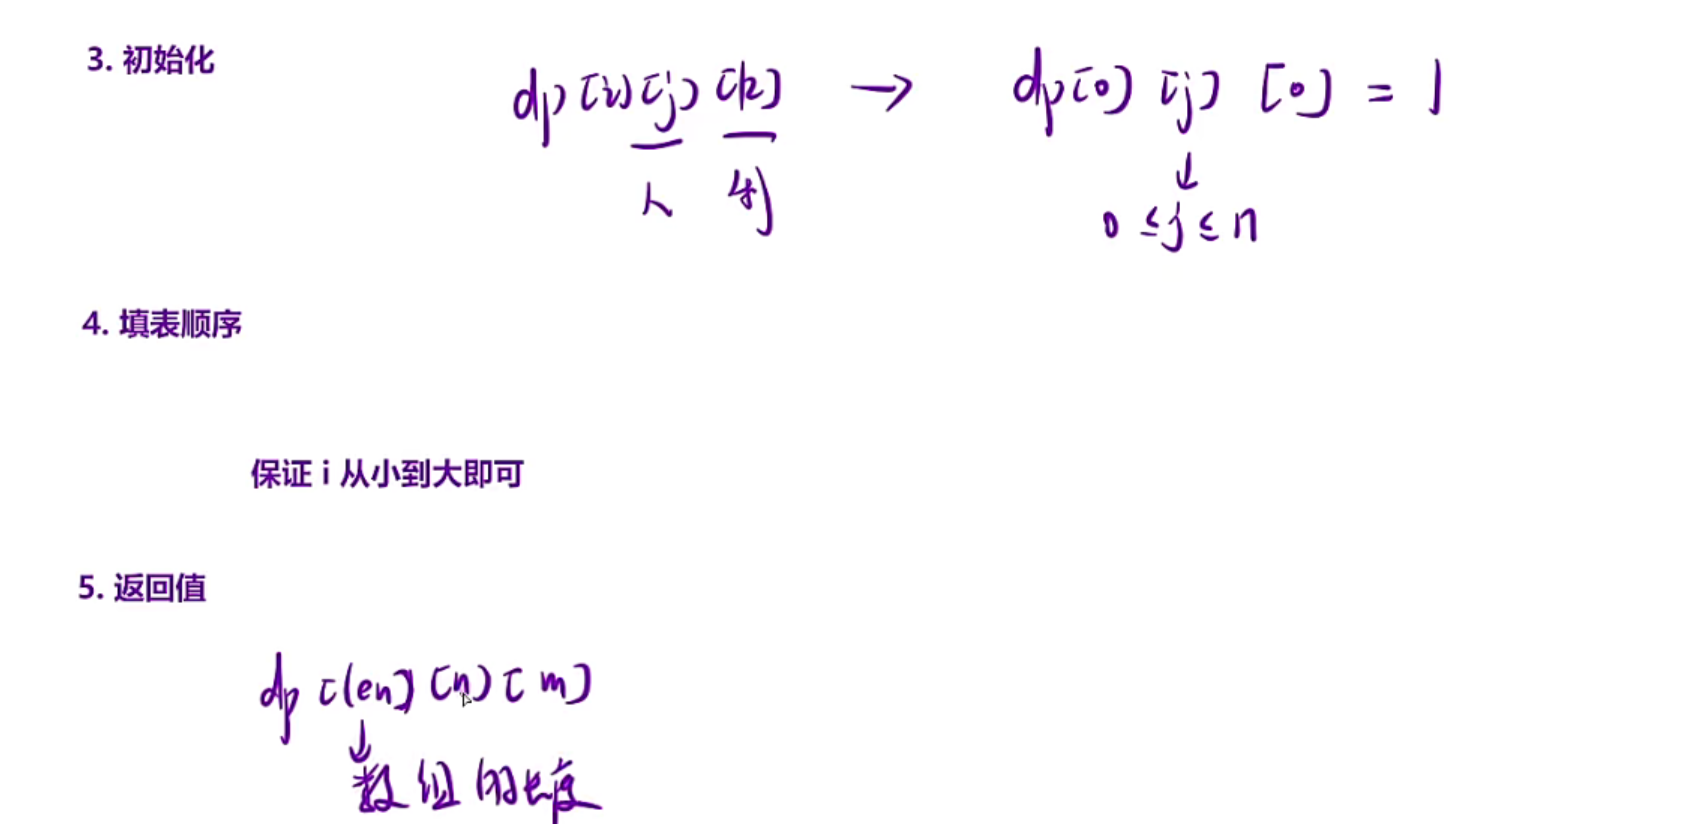 3. 初始化
dp[i][j][k] → dp[0][j][0] = 1
人 利
↓
0 ≤ j ≤ n
4. 填表顺序
保证 i 从小到大即可
5. 返回值
dp[len][n][m]
↓
数组的长度